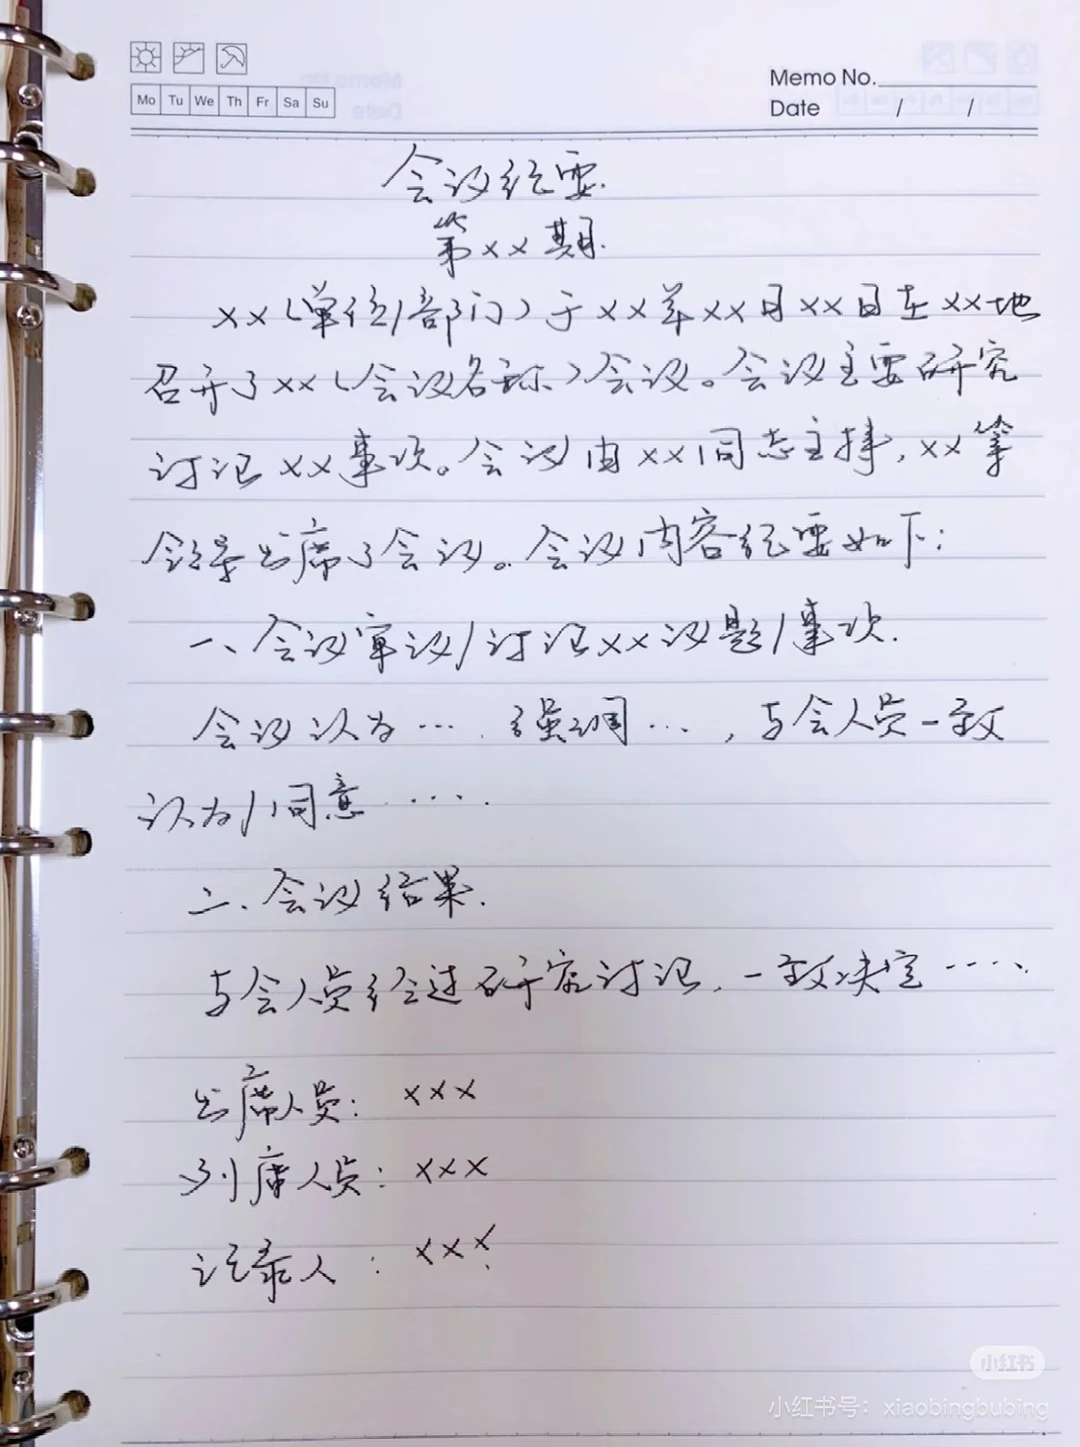 Mo Tu We Th Fr Sa Su
Memo No.
Date / /
会议纪要.
第xx期.
xx(单位/部门)于xx年xx月xx日在xx地
召开了xx(会议名称)会议。会议主要研究
讨论xx事项。会议由xx同志主持,xx等
领导出席了会议。会议内容纪要如下:
一、会议审议/讨论xx议题/事项.
会议认为…. 强调…,与会人员一致
认为/同意…..
二、会议结果.
与会人员经过研究讨论,一致决定…..
出席人员: xxx
列席人员: xxx
记录人: xxx
小红书
小红书号: xiaobingbubing